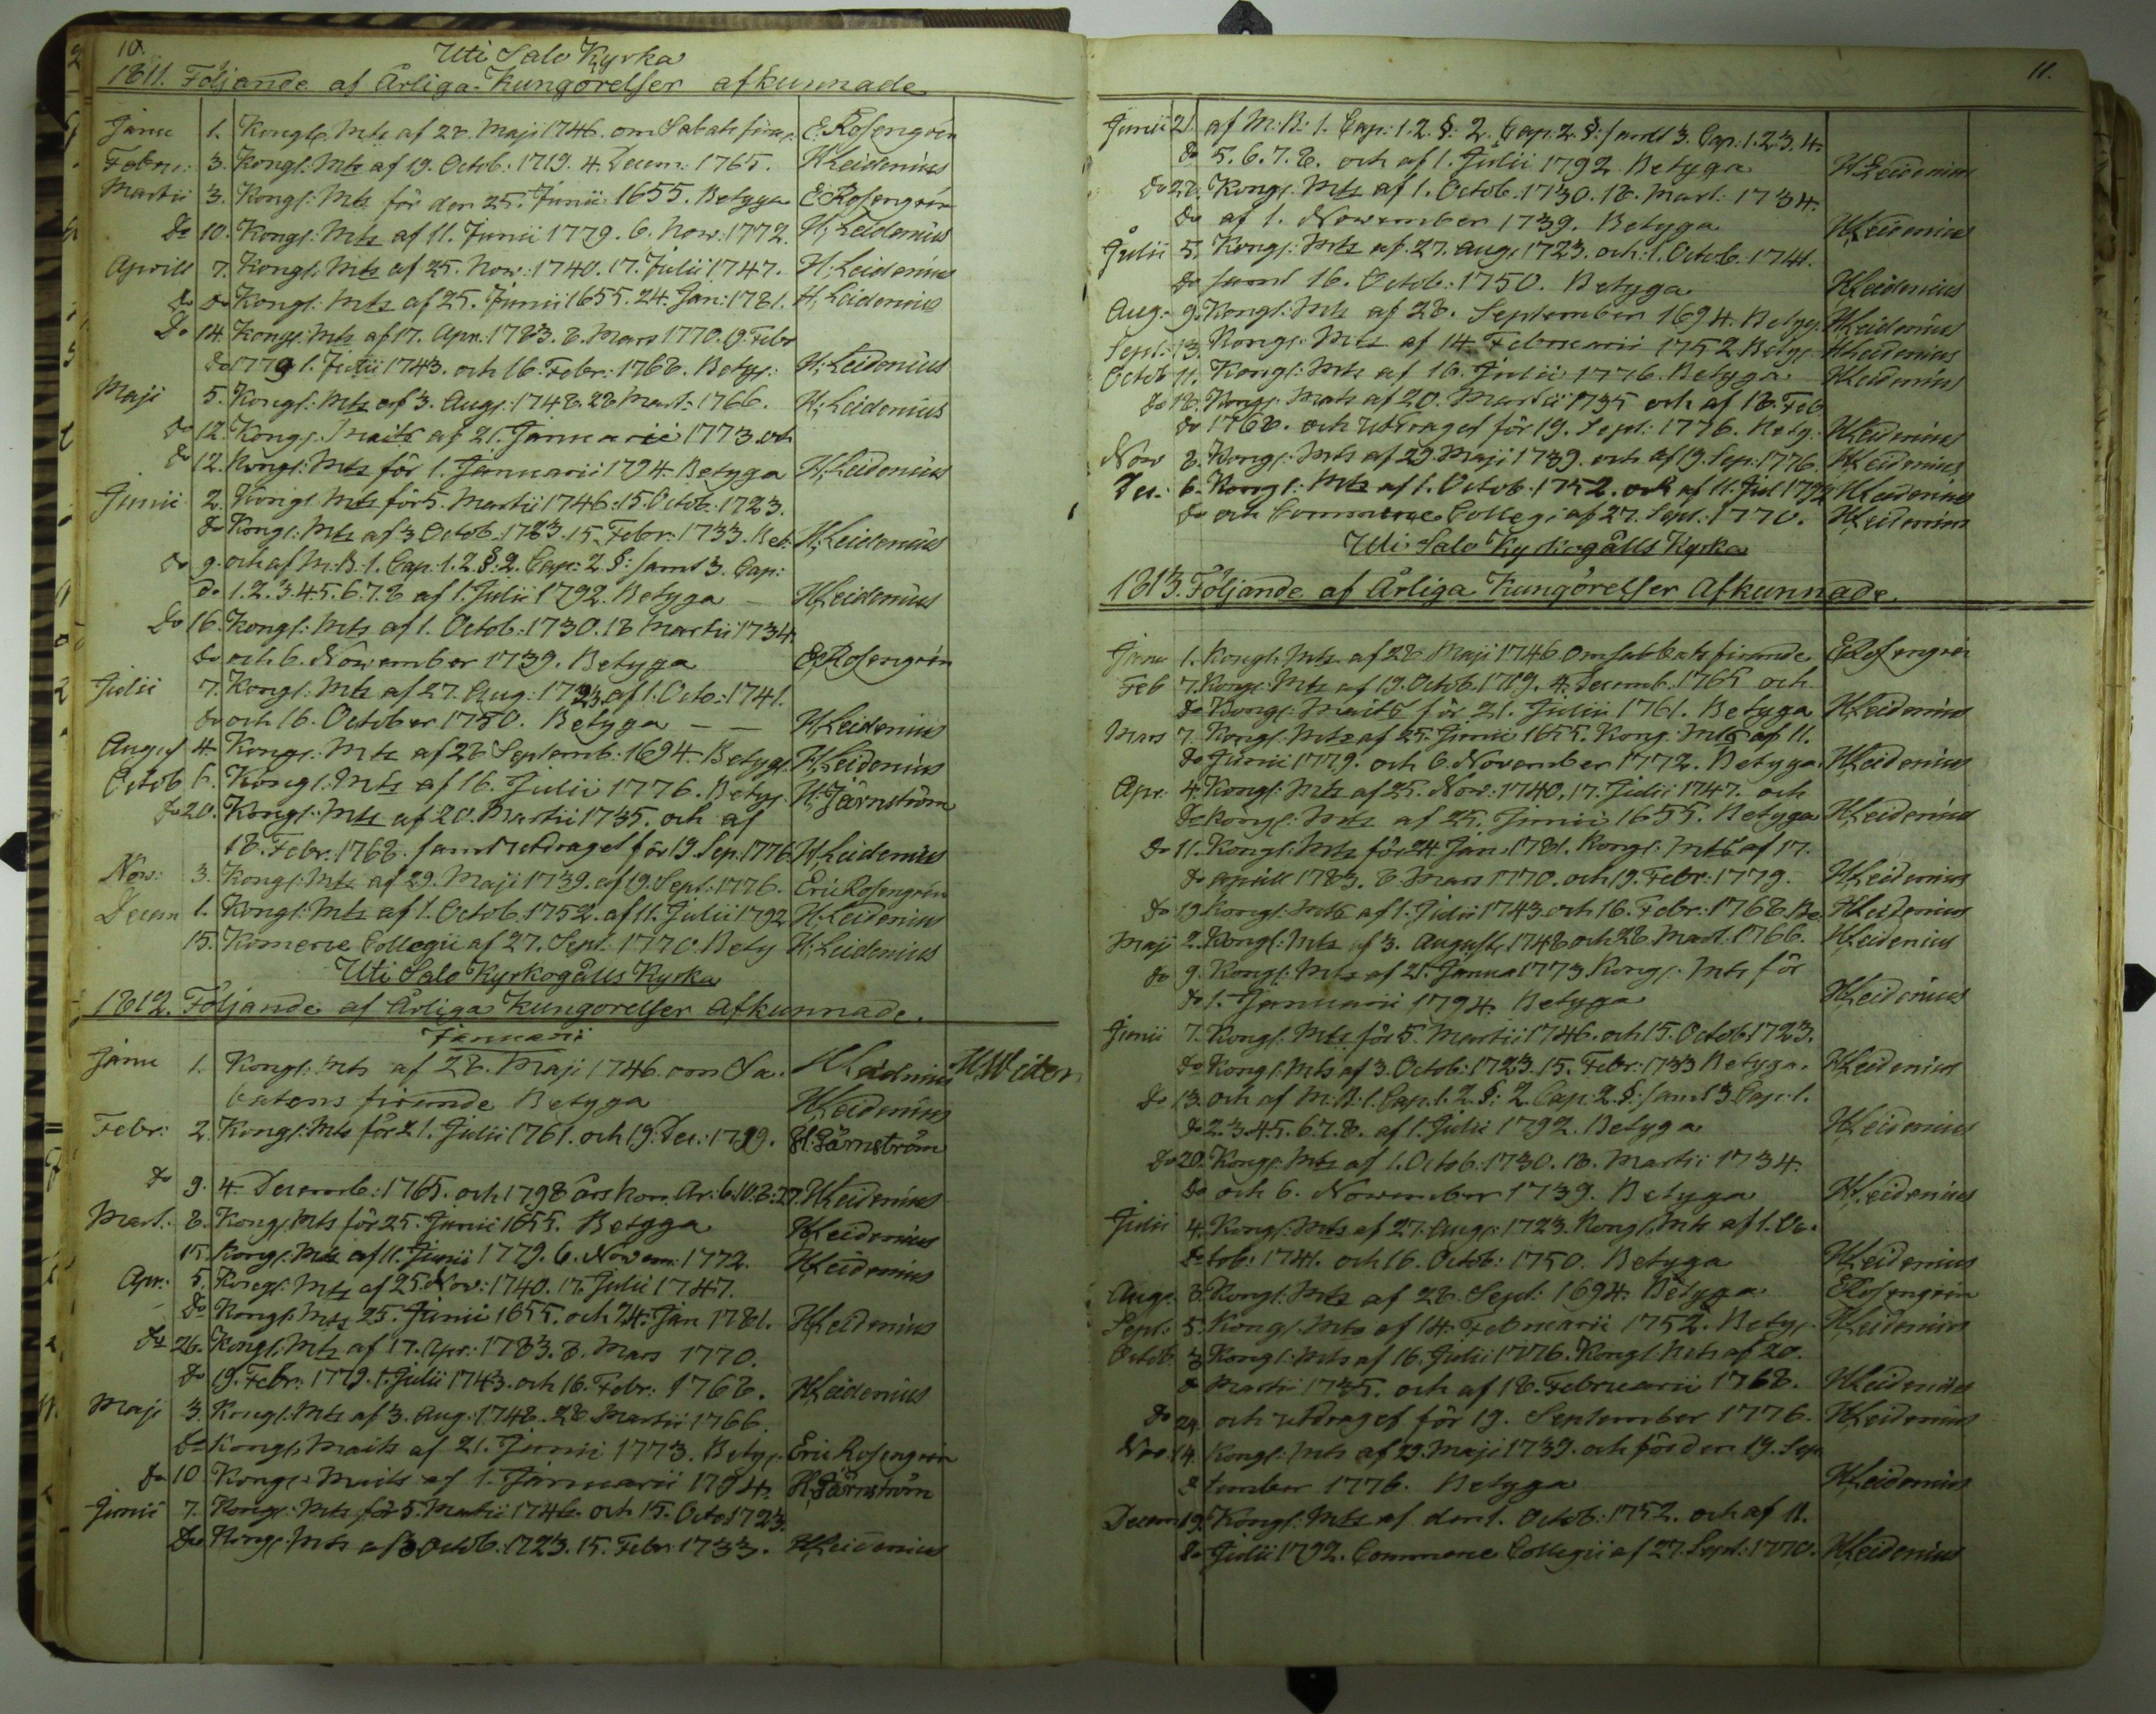 10.
Uti Salo Kyrka
1811. Följande af Årliga Kungörelser afkunnade
Janu 1. Kongl. Mts af 28. Maji 1746. om Sabats firan: E. Rosengrén
Febru: 3. Kongl: Mts af 19. Octob: 1719. 4. Decem: 1765. H Leidenius
Martii 3. Kongl: Mts för den 25. Junii 1655. Betyga E: Rosengrén
Do 10. Kongl: Mts af 11. Junii 1779. 6. Now: 1772. H: Leidenius
Aprill 7. Kongl: Mts af 25. Now: 1740. 17. Julii 1747. H: Leidenius
do do Kongl: Mts af 25. Junii 1655. 24. Jan: 1781. H: Leidenius
Do 14. Kongl: Mts af 17. Apr: 1783. 8. Mars 1770. 19. Febr
do 1779 1. Julii 1743. och 16. Febr: 1768. Betyg: H: Leidenius
Maji 5. Kongl: Mts af 3. Aug: 1748. 28 Mart: 1766. H: Leidenius
do 12. Kongl: Maits af 21. Januarii 1773. och
do 12. Kongl: Mts för 1. Januarii 1794. Betyga H: Leidenius
Junii 2. Kongl. Mts för 5. Martii 1746. 15. Octob. 1723.
do Kongl: Mts af 3 Octob: 1723. 15. Febr: 1733. Bet: H: Leidenius
do 9. och af M:B: 1. Cap: 1. 2 §: 2. Cap: 2 §: samt 3. Cap:
do 1. 2. 3. 4. 5. 6. 7. 8 af 1. Julii 1792. Betyga — H: Leidenius
Do 16. Kongl: Mts af 1. Octob: 1730. 18 Martii 1734
do och 6. November 1739. Betyga E: Rosengrén
Julii 7. Kongl: Mts af 27. Aug: 1723. af 1. Octo: 1741.
do och 16. October 1750. Betyga — — H: Leidenius
August 4. Kongl: Mts af 28 Septemb: 1694. Betyg: H: Leidenius
Octob 6. Kongl: Mts af 16. Julii 1776. Betyg: H: Järnström
do 20. Kongl: Mts af 20. Martii 1735. och af
18. Febr. 1768. samt utdraget för 19. Sep. 1776 H: Leidenius
Now: 3. Kongl: Mts af 29. Maji 1739. af 19. Sept: 1776. Eric Rosengrén
Decem 1. Kongl: Mts af 1. Octob. 1752. af 11. Julii 1792 H: Leidenius
15. Komerce Collegii af 27. Sept. 1770. Bety H: Leidenius
Uti Salo Kyrkogålls Kyrka
1812. Följande af Årliga Kungorelser afkunnade.
Januari
Janu 1. Kongl: Mts af 28. Maji 1746. om Sa- H Leidenius
batens firande Betyga H Leidenius
Febr: 2. Kongl: Mts för 21. Julii 1761. och 19. Dec: 1799. H: Järnström
do 9. 4. Decemb: 1765. och 1798 års H Leidenius
Mart: 8. Kongl: Mts för 25. Junii 1655. Betyga H Leidenius
15. Kongl: Mts af 11. Junii 1779. 6. Novem: 1772. H Leidenius
Apr: 5. Kongl: Mts af 25 Nov: 1740. 17. Julii 1747.
Do Kongl: Mts 25. Junii 1655. och 24. Jan 1781. H Leidenius
do 26. Kongl: Mts af 17. Apr: 1783. 8. Mars 1770.
do 19. Febr: 1779. 1. Julii 1743. och 16. Febr: 1768. H Leidenius
Maji 3. Kongl. Mts af 3. Aug: 1748. 28 Martii 1766
do Kongl: Maits af 21. Junii 1773. Betyg: Eric Rosengrén
do 10. Kongl: Maits af 1. Januarii 1794. H: Järnström
Junii 7. Kongl: Mts för 5. Martii 1746. och 15. Octo 1723.
Do Kongl: Mts af 3 Octob. 1723. 15. Febr 1733. H Leidenius
11.
Junii 21 af M:B: 1. Cap: 1. 2. §: 2. Cap: 2. §: samt 3. Cap: 1. 2. 3. 4.
do 5. 6. 7. 8. och af 1. Julii 1792 Betyga H Leidenius
do 28. Kongl: Mts af 1. Octob. 1730. 18. Mart: 1734.
do af 1. November 1739. Betyga H Leidenius
Julii 5. Kongl: Mts af 27. Aug: 1723. och 1. Octob. 1741.
do samt 16. Octob: 1750. Betyga H Leidenius
Aug: 9. Kongl: Mts af 28. September 1694. Betyg: H Leidenius
Sept: 13. Kongl: Mts af 14. Februarii 1752 Betyg H Leidenius
Octob 11. Kongl: Mts af 16. Julii 1776. Betyga H Leidenius
do 18. Kongl: Mats af 20. Martii 1735 och af 18. Feb
do 1768. och utdraget för 19. Sept: 1776. Bety: H Leidenius
Now 8. Kongl: Mts af 29 Maji 1739. och af 19. Sep: 1776. H Leidenius
Dec: 6. Kongl: Mts af 1. Octob. 1752. och af 11. Jul 1792 H Leidenius
do och Commerce Collegi af 27. Sept: 1770. H Leidenius
Uti Salo Kyrkogålls Kyrka
1813. Följande af Årliga Kungörelser Afkunnade.
Janu 1. Kongl: Mts af 28 Maji 1746 om sabbats firande E Rosengrén
Feb 7. Kongl: Mts af 19. Octob. 1719. 4. Decemb. 1765 och
do Kongl: Maits för 21. Julii 1761. Betyga H Leidenius
Mars 7. Kongl: Mts af 25. Junii 1655. Kongl: Mts af 11.
do Junii 1779. och 6. November 1772. Betyga H Leidenius
Apr: 4. Kongl: Mts af 25. Nov: 1740. 17. Julii 1747. och
do Kongl: Mts af 25. Junii 1655. Betyga H Leidenius
do 11. Kongl: Mts för 24 Jan: 1781. Kongl: Mts af 17.
do aprill 1783. 8. Mars 1770. och 19. Febr: 1779. H Leidenius
do 19 Kongl: Mts af 1. Julii 1743. och 16. Febr: 1768. Be. H Leidenius
Maji 2. Kongl: Mts af 3. August 1748 och 28. Mart 1766. H Leidenius
do 9. Kongl: Mts af 21. Janua 1773 Kongl: Mts för
do 1. Januarii 1794. Betyga H Leidenius
Junii 7. Kongl: Mts för 5. Martii 1746. och 15. Octob 1723.
do Kongl: Mts af 3. Octob: 1723. 15. Febr: 1733 Betyga. H Leidenius
do 13. och af M:B: 1. Cap. 1. 2. §: 2 Cap: 2. §: samt 3 Cap: 1.
do 2. 3. 4. 5. 6. 7. 8. af 1. Julii 1792. Betyga H Leidenius
do 20. Kongl: Mts af 1. Octob: 1730. 18. Martii 1734.
do och 6. November 1739. Betyga H Leidenius
Julii 4. Kongl: Mts af 27. Aug: 1723. Kongl: Mts af 1. Oc-
do tob: 1741. och 16. Octob: 1750. Betyga H Leidenius
Aug: 8. Kongl: Mts af 28. Sept: 1694. Betyga E Rosengrén
Sept: 5. Kongl: Mts af 14. Februarii 1752. Betyg: H Leidenius
Octob. 3 Kongl: Mts af 16. Julii 1776. Kongl Mts af 20.
do Martii 1735. och af 18. Februarii 1768. H Leidenius
do 24. och utdraget för 19. September 1776. H Leidenius
Nov: 14. Kongl: Mts af 29. Maji 1739. och för den 19. Sep
do tember 1776. Betyga H Leidenius
Decem 19. Kongl: Mts af den 1. Octob: 1752. och af 11.
do Julii 1792. Commerce Collegii af 27. Sept: 1770. H Leidenius